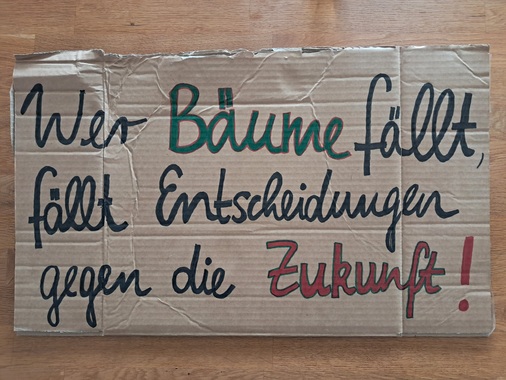 Wer Bäume fällt,
fällt Entscheidungen
gegen die Zukunft!